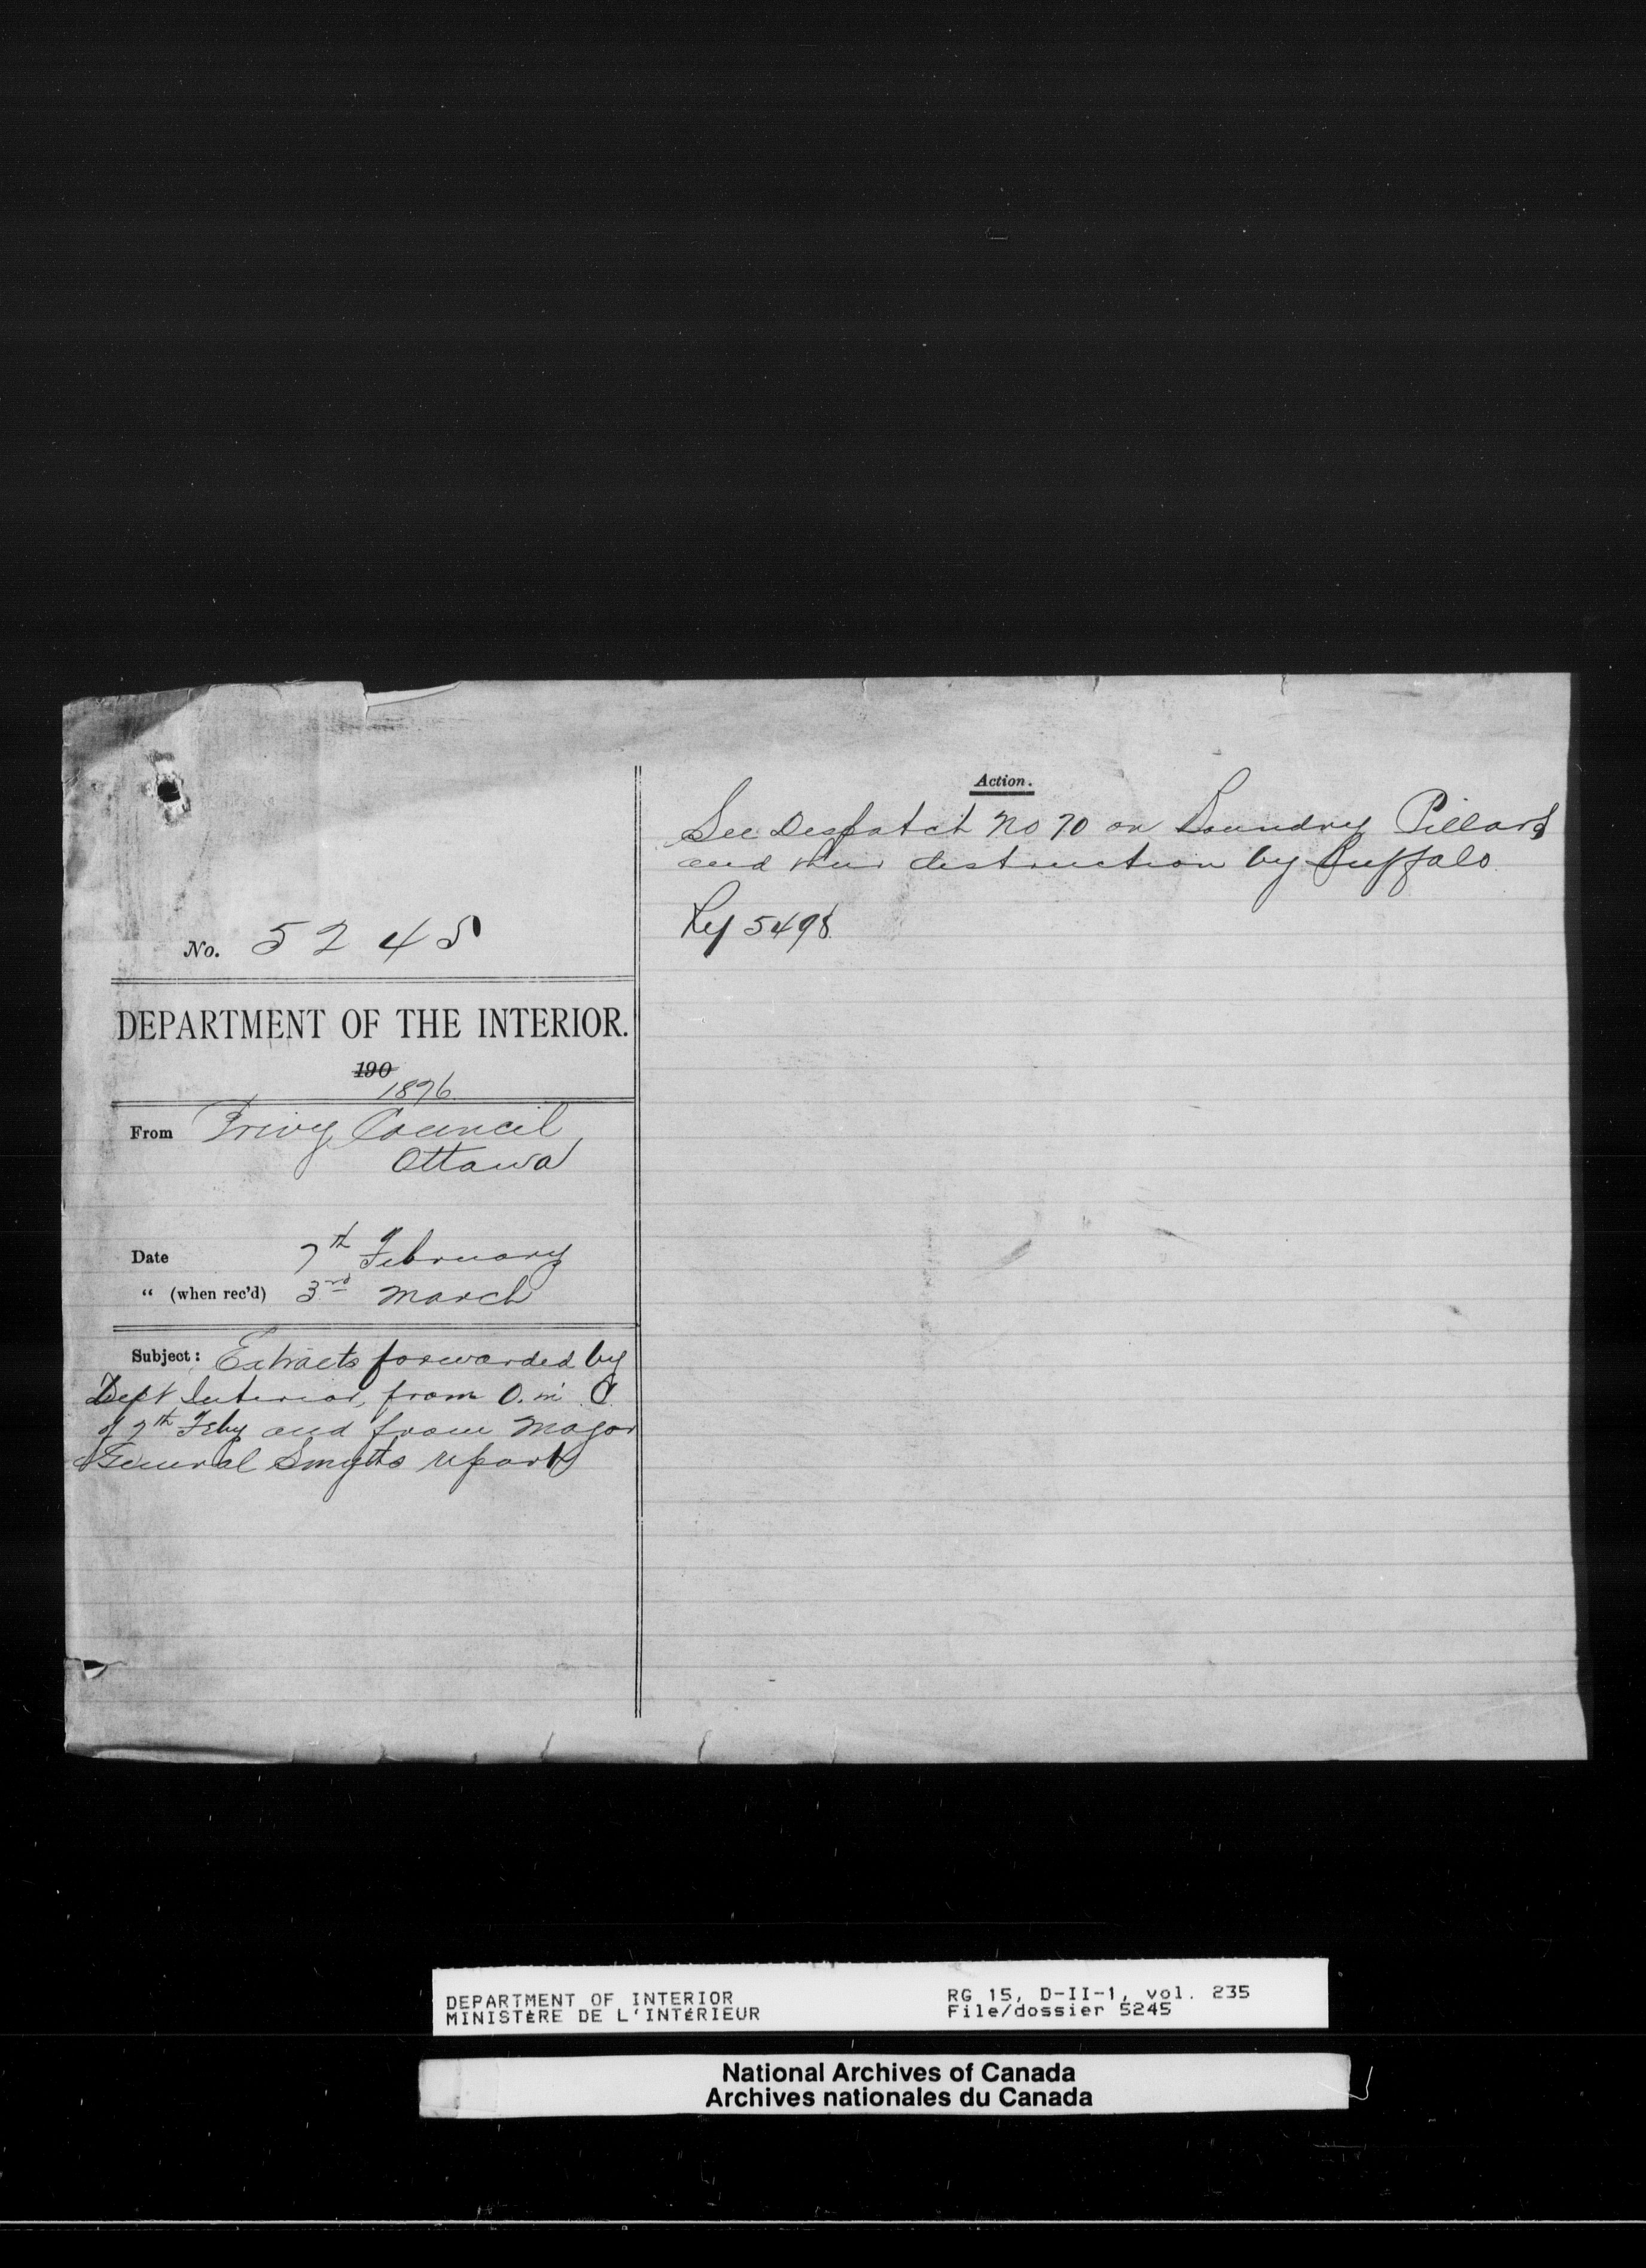 No. 5245
DEPARTMENT OF THE INTERIOR.
190
1876
From Privy Council,
Ottawa
Date 7th February
" (when rec'd) 3rd March
Subject: Extracts forwarded by
Dept Interior, from O. in C.
of 7th Feby and from Major
General Smyth's report
Action.
See Despatch No 70 on Boundry Pillars
and their destruction by Buffalo
Ref 5498
DEPARTMENT OF INTERIOR
MINISTÈRE DE L'INTÉRIEUR
RG 15, D-II-1, vol. 235
File/dossier 5245
National Archives of Canada
Archives nationales du Canada